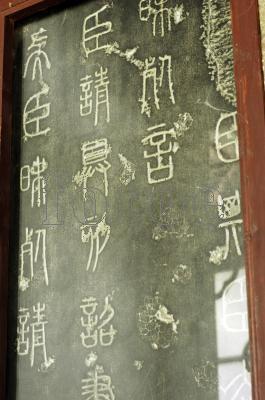 臣斯臣去
昧死言
臣請具刻詔書
矣臣昧死請